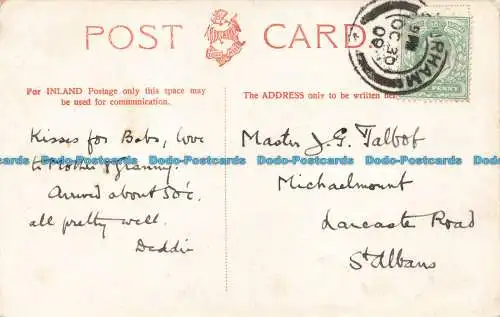 POST CARD
For INLAND Postage only this space may
be used for communication.
The ADDRESS only to be written here
Kisses for Bobs, love
to Mother & Granny.
Arrived about 5 o'c.
all pretty well.
Deddie
Master J. G. Talbot
Michaelmount
Lancaster Road
St Albans
RHAMS
OC 30
09
PENNY
Dodo-Postcards Dodo-Postcards Dodo-Postcards Dodo-Postcards
Dodo-Postcards Dodo-Postcards Dodo-Postcards